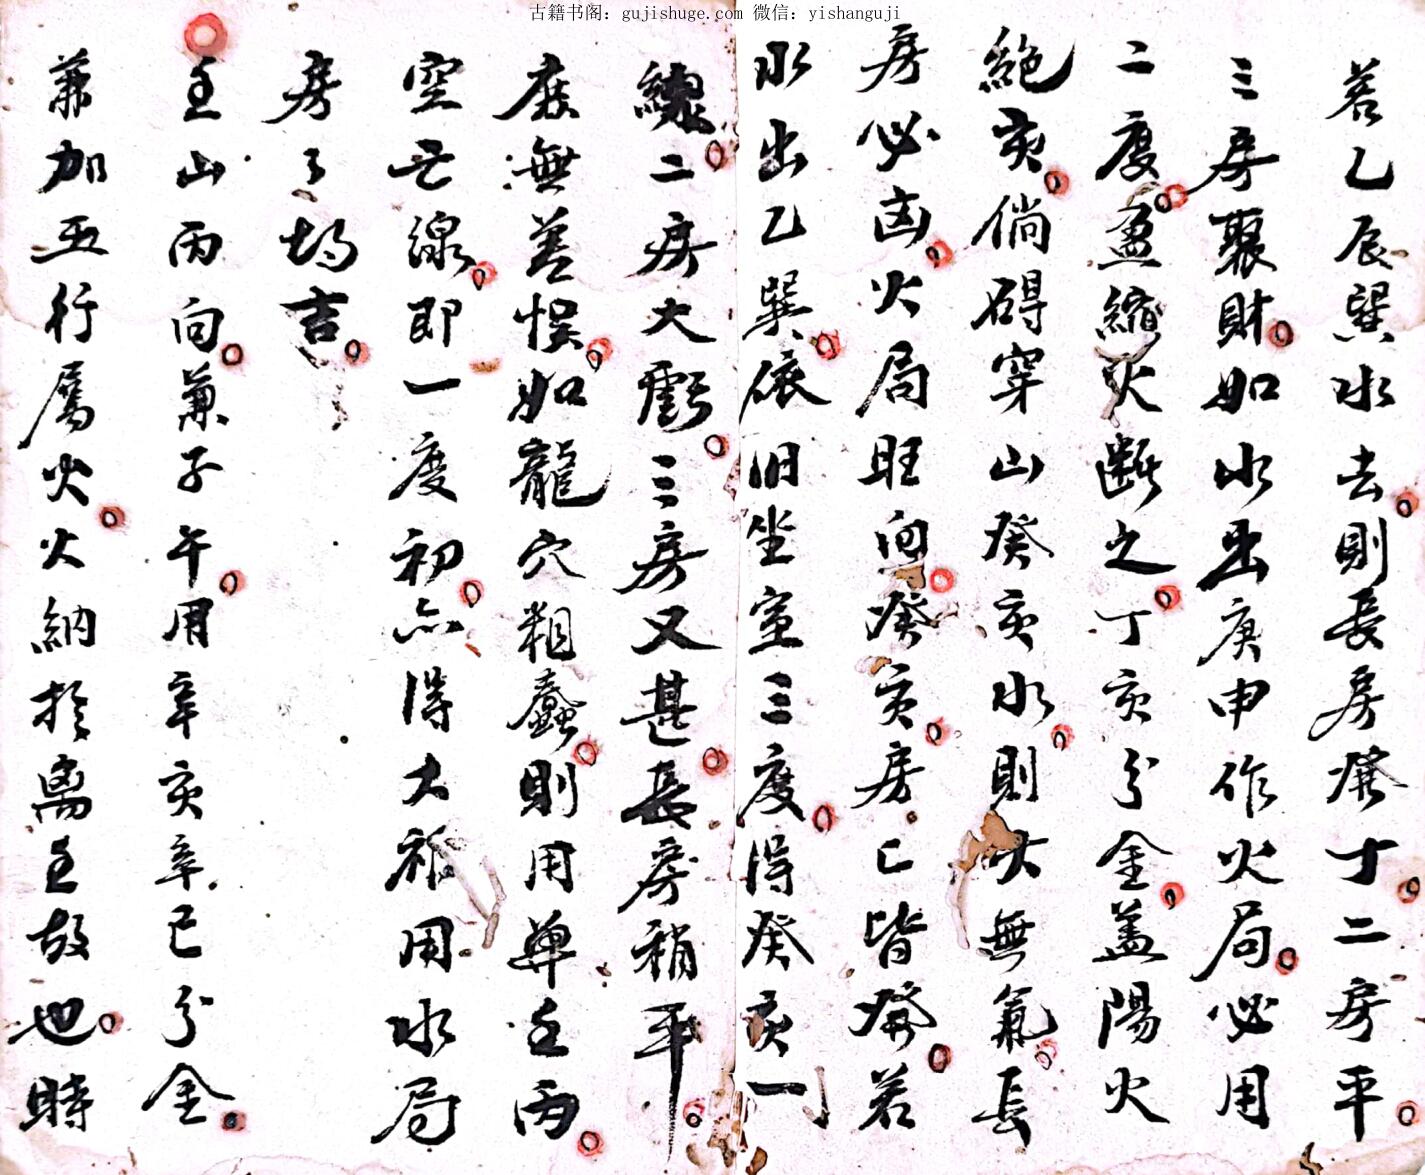 古籍书阁：gujishuge.com 微信：yishanguji
若乙辰巽水去則長房發丁二房平
三房聚財如水出庚申作火局必用
二度盈縮火斷之丁亥分金盖陽火
絶亥倘碍穿山癸亥水則大無氣長
房必凶火局旺向癸亥房亡皆發若
水出乙巽依旧坐室三度得癸亥一
線二房大虧三房又甚長房稍平
庶無差悮如龍穴粗蠢則用單壬丙
空亡線即一度初亦得大祚用水局
房了均吉
壬山丙向兼子午用辛亥辛巳分金
兼加五行屬火火納於离壬故也時